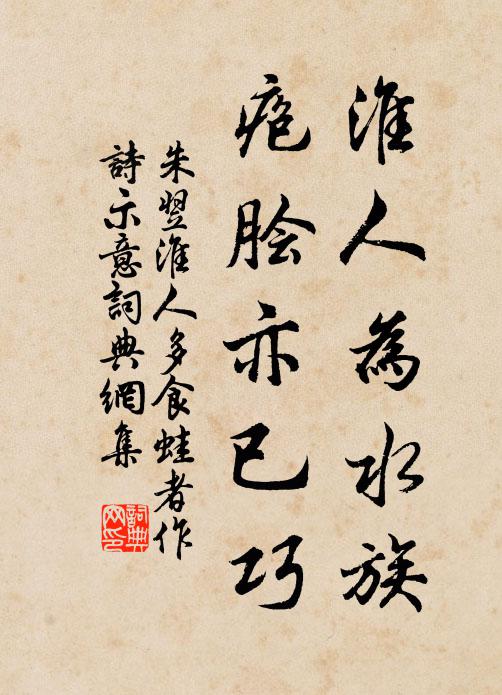 淮人為水族
疱膾亦已巧
朱翌淮人多食蛙者作
詩示意詞典網集
詞典
网印